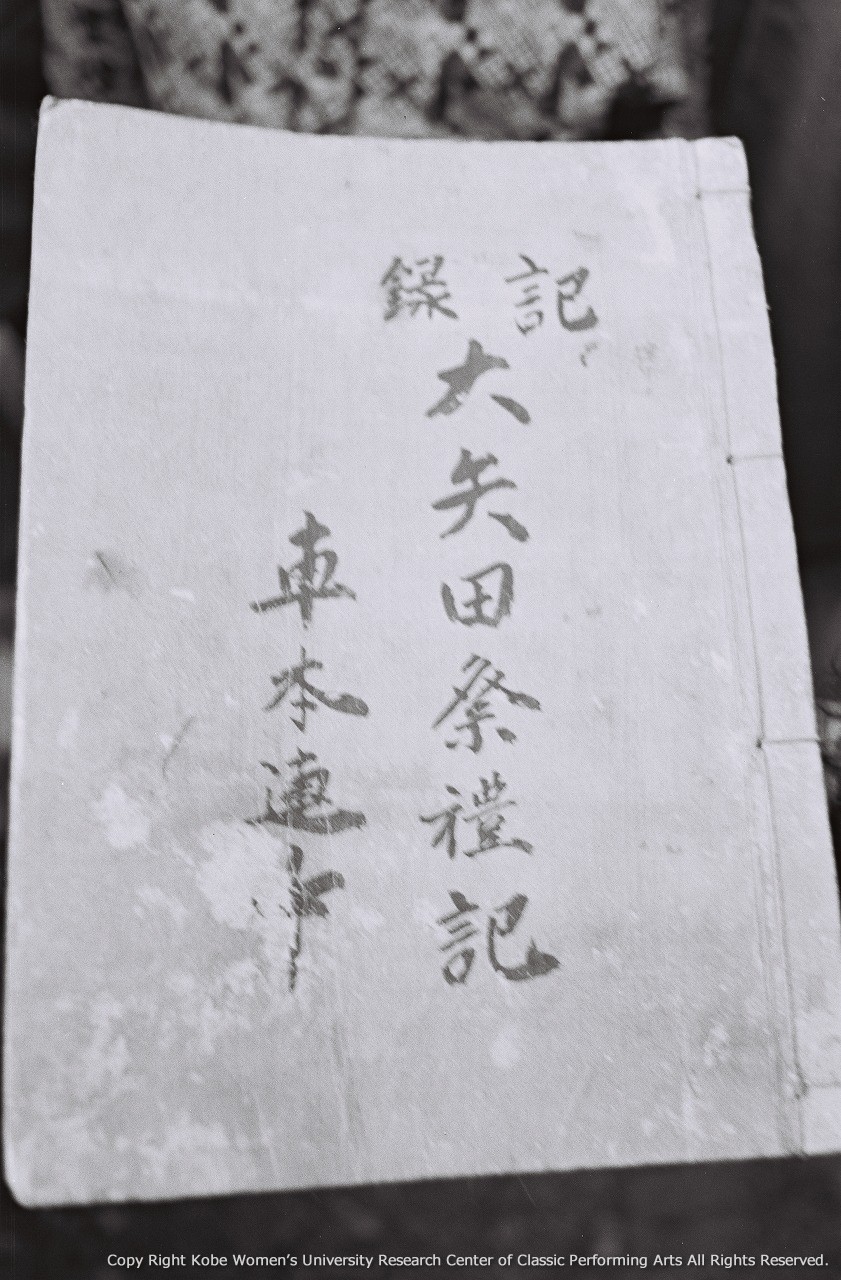 記録
大矢田祭禮記
車本連中
Copy Right Kobe Women's University Research Center of Classic Performing Arts All Rights Reserved.